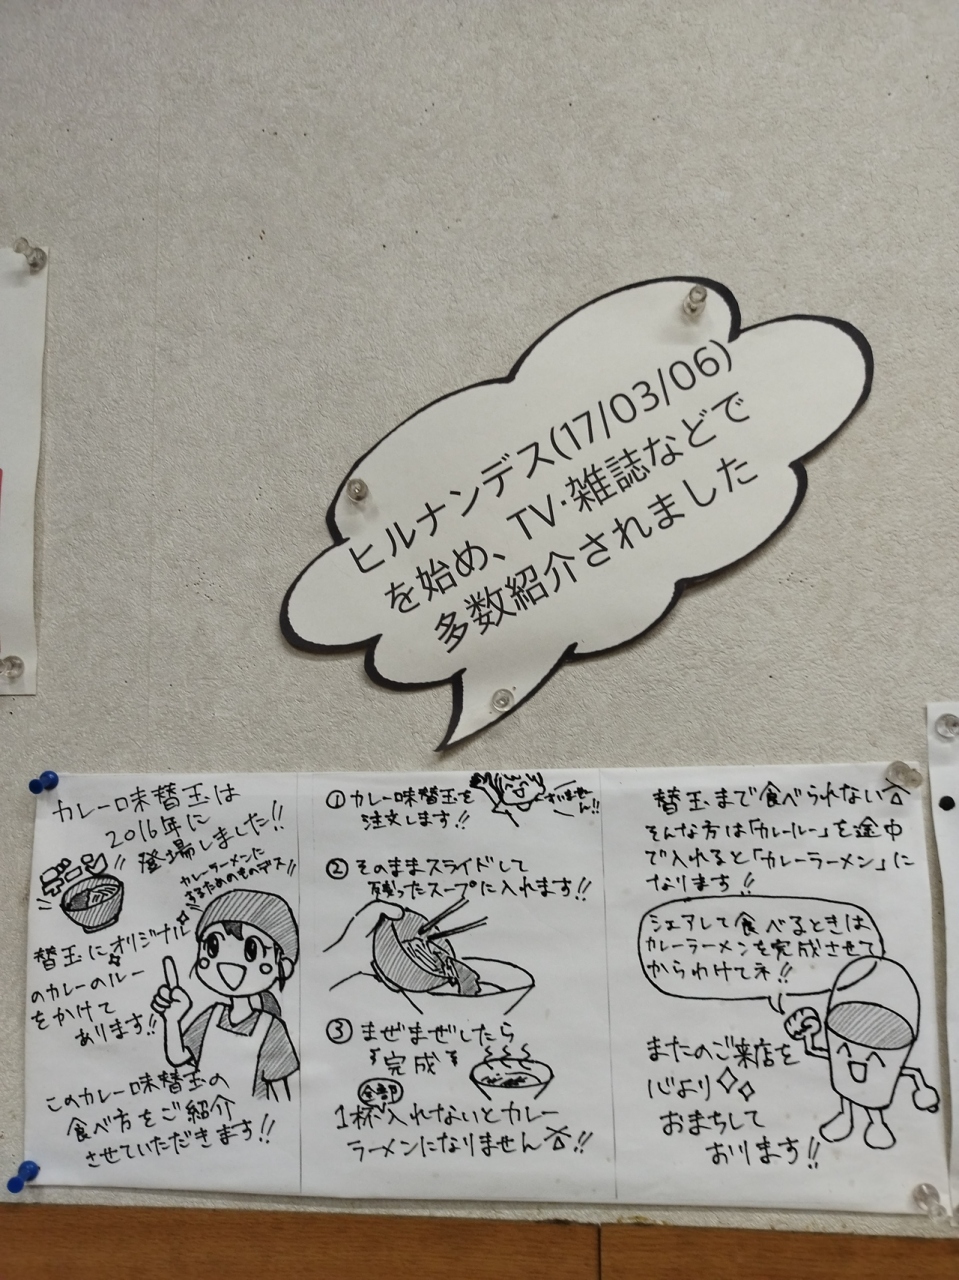 ヒルナンデス(17/03/06)
を始め、TV・雑誌などで
多数紹介されました
カレー味替玉は
2016年に
登場しました!!
カレーラーメンに
するためのものデス!!
替玉にオリジナル
のカレーのルー
をかけて
あります!!
このカレー味替玉の
食べ方をご紹介
させていただきます!!
① カレー味替玉を
注文します!!
すいませ
ん!!
② そのままスライドして
残ったスープに入れます!!
③ まぜまぜしたら
完成
全部
1杯入れないとカレー
ラーメンになりません!!
替玉まで食べられない
そんな方は「カレールー」を途中
で入れると「カレーラーメン」に
なります!!
シェアして食べるときは
カレーラーメンを完成させて
からわけてネ!!
またのご来店を
心より
おまちして
おります!!